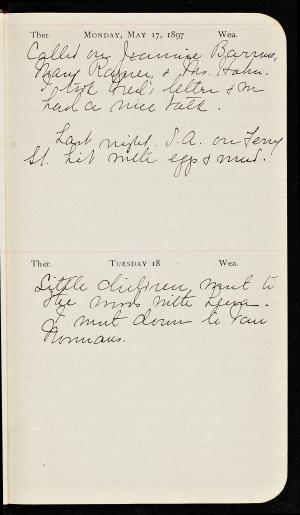 Ther. MONDAY, MAY 17, 1897 Wea.
Called on Jeannie Barrows,
Mary Rayner, & Mrs. Hahn.
I took Fred's letter & we
had a nice talk.
Last night. S.A. on Ferry
St. hit with eggs & mud.
Ther. TUESDAY 18 Wea.
Little children went to
the woods with Lena.
I went down to Van
Normans.